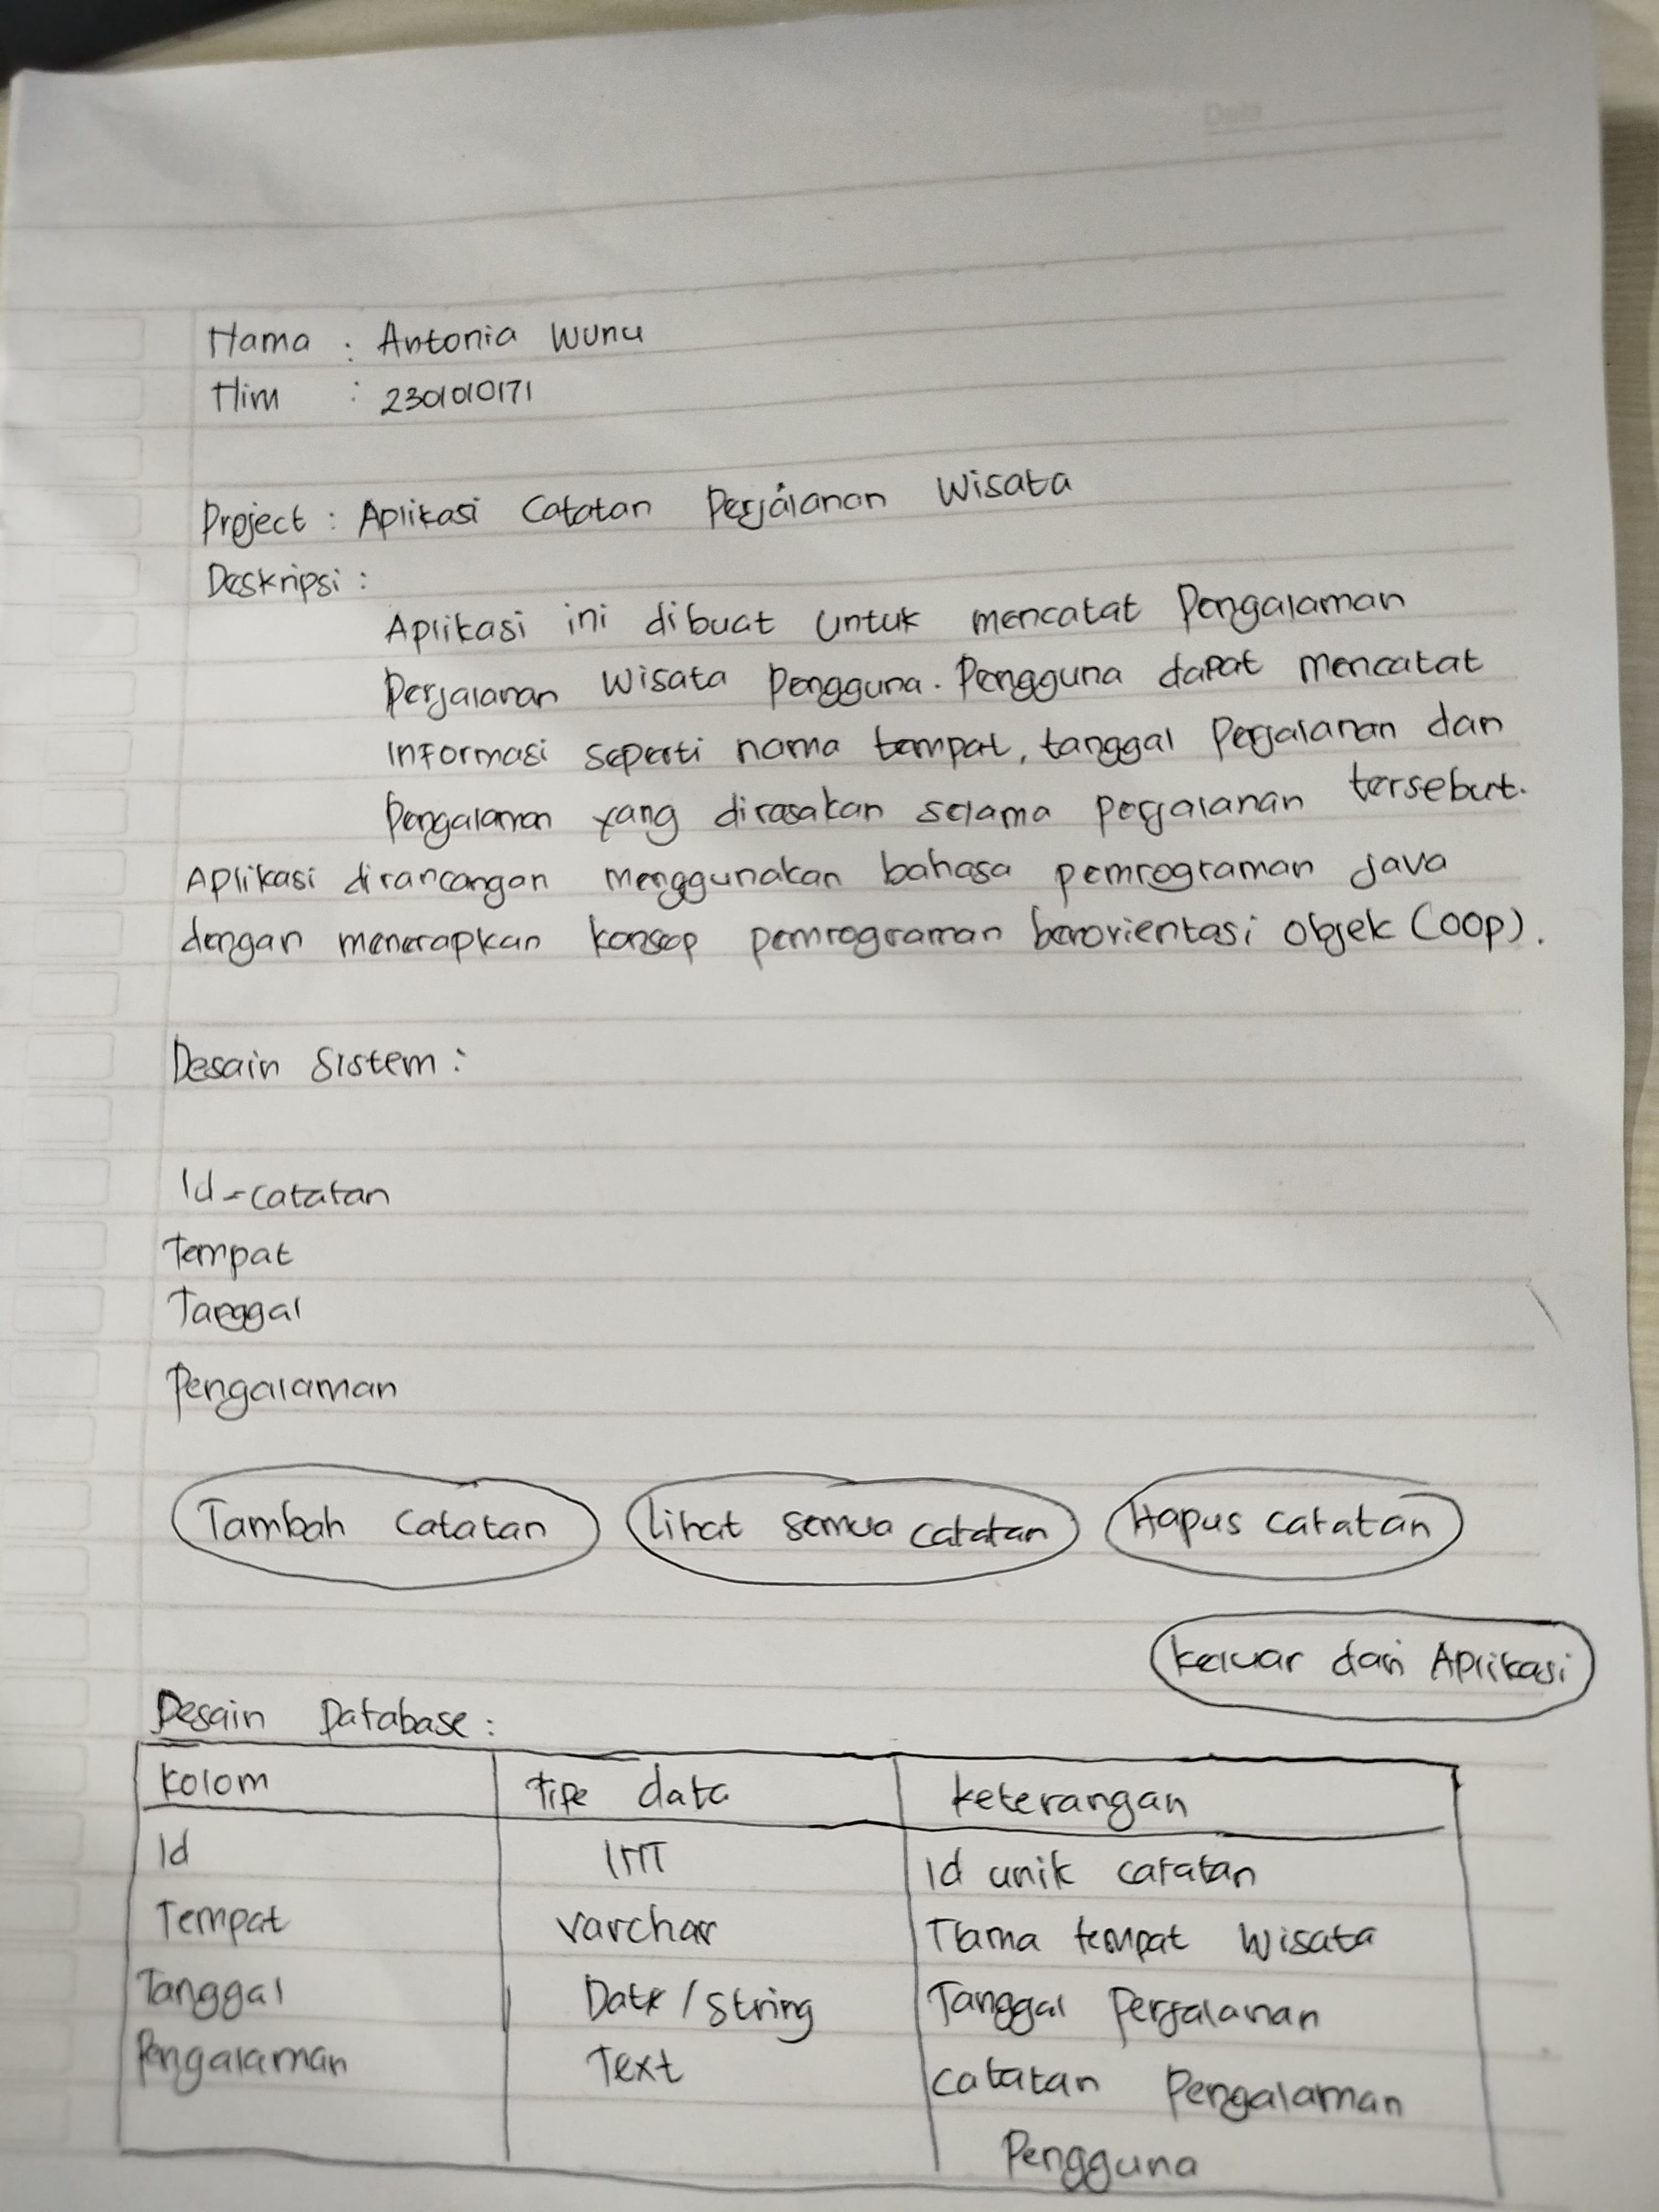 Date
Nama : Antonia Wunu
Nim : 2301010171
Project : Aplikasi Catatan Perjalanan Wisata
Deskripsi :
Aplikasi ini dibuat untuk mencatat Pengalaman
Perjalanan Wisata Pengguna. Pengguna dapat mencatat
Informasi seperti nama tempat, tanggal Perjalanan dan
Pengalaman yang dirasakan selama perjalanan tersebut.
Aplikasi dirancangan menggunakan bahasa pemrograman java
dengan menerapkan konsep pemrograman berorientasi objek (OOP).
Desain Sistem :
Id-catatan
Tempat
Tanggal
Pengalaman
Tambah Catatan lihat semua catatan Hapus catatan
keluar dari Aplikasi
Desain Database :
Kolom Tipe data keterangan
Id INT Id unik catatan
Tempat Varchar Nama tempat wisata
Tanggal Date / String Tanggal Perjalanan
Pengalaman Text catatan Pengalaman
Pengguna